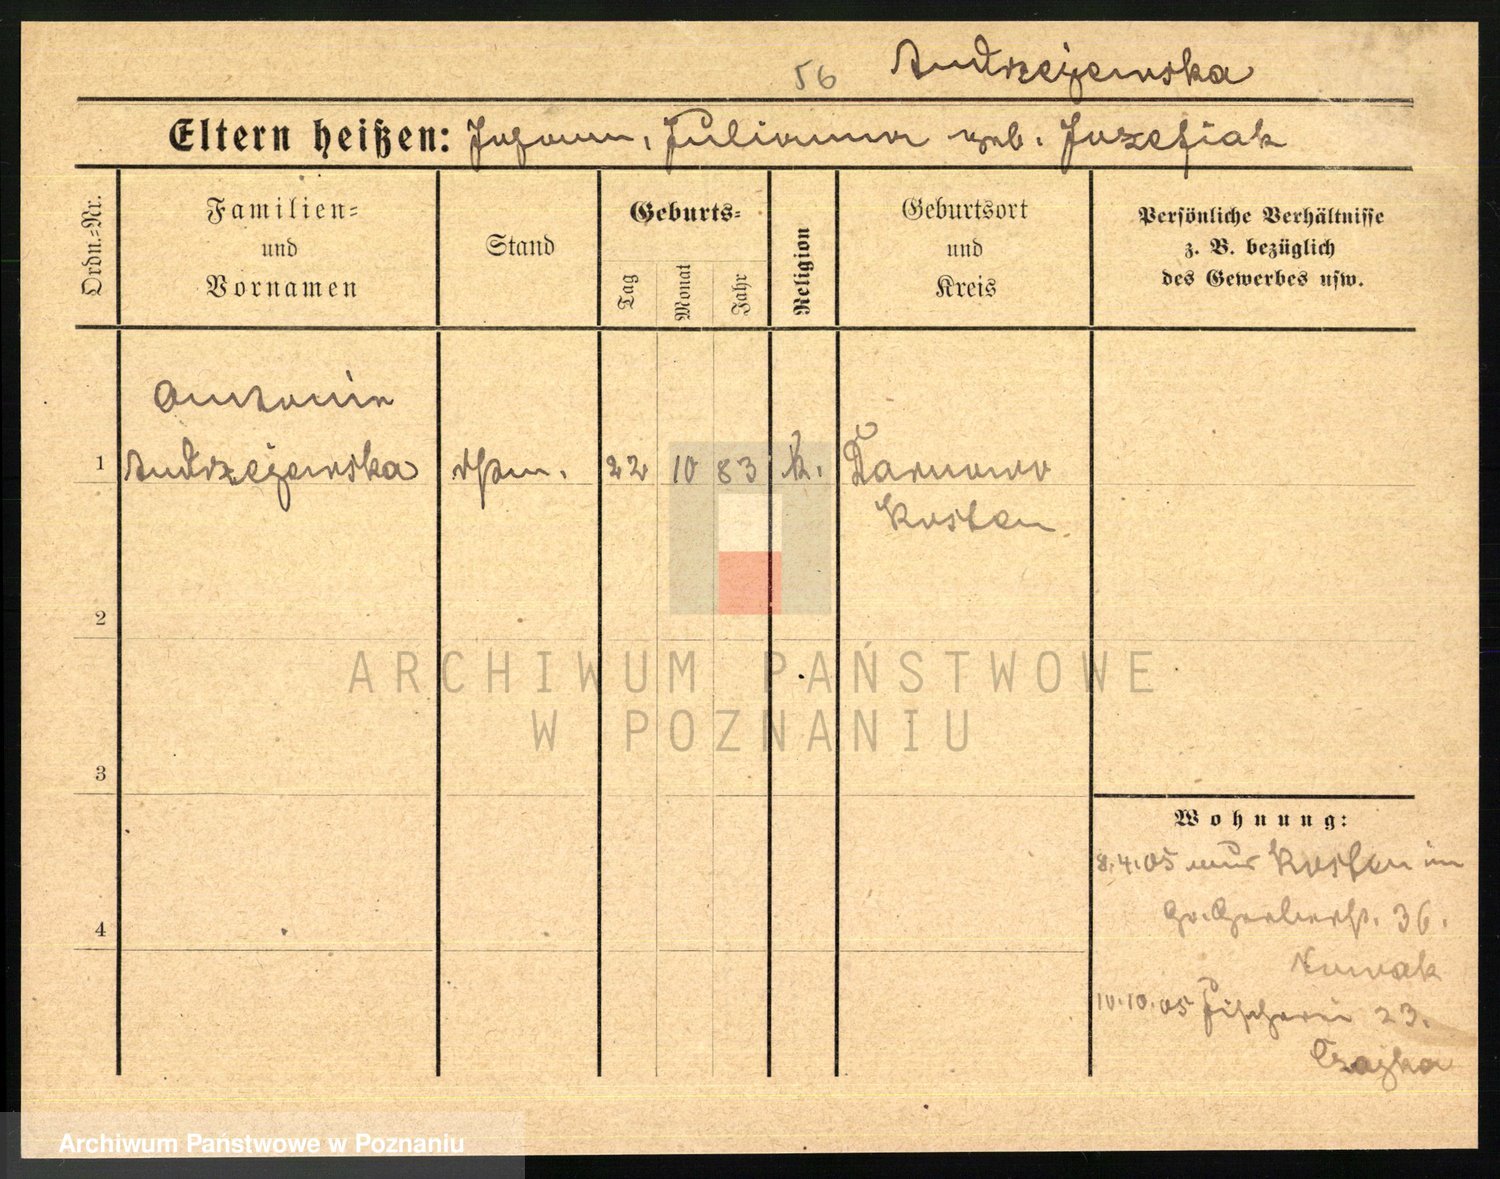 56 Andrzejewska
Eltern heißen: Johann, Julianna geb. Jozefiak
Ordn.-Nr.
Familien-
und
Vornamen
Stand
Geburts-
Tag
Monat
Jahr
Religion
Geburtsort
und
Kreis
Persönliche Verhältnisse
z. B. bezüglich
des Gewerbes usw.
Antonie
1 Andrzejewska 22 10 83 k. Tarnowo
Kosten
2
ARCHIWUM PAŃSTWOWE
W POZNANIU
3
Wohnung:
8.4.05 aus Kosten in
Gr. Gerberst. 36.
4
Nowak
10.10.05 Fischerei 23.
Czajka
Archiwum Państwowe w Poznaniu